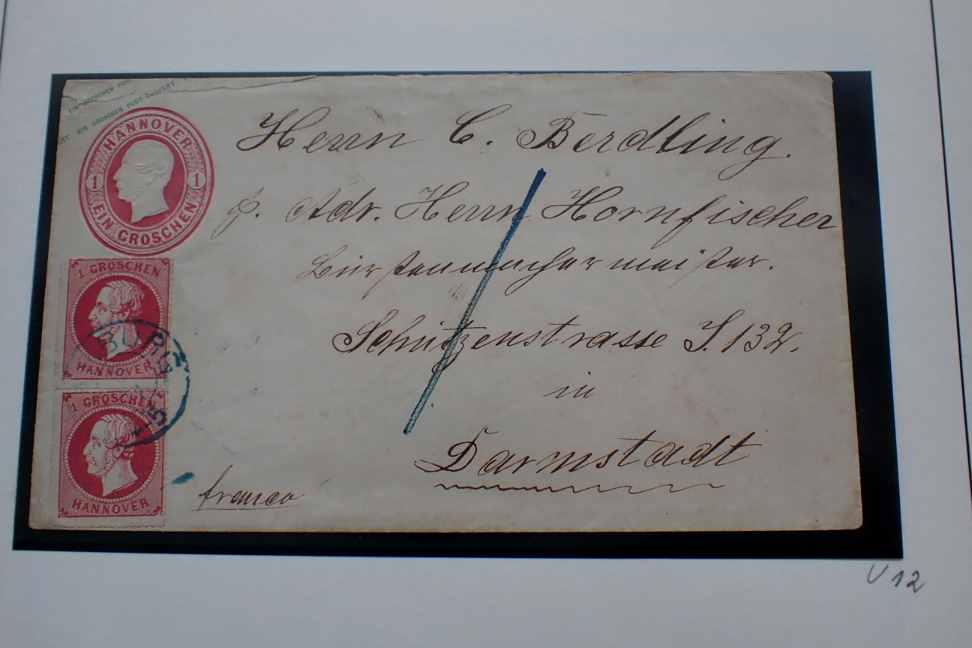 EIN GROSCHEN POST-COUVERT
HANNOVER
1 1
EIN GROSCHEN
1 GROSCHEN
HANNOVER
1 GROSCHEN
HANNOVER
Herrn C. Berdling.
p. Adr. Herrn Hornfischer
Bürstenmachermeister.
Schützenstrasse J. 132.
in
Darmstadt
franco
V 12